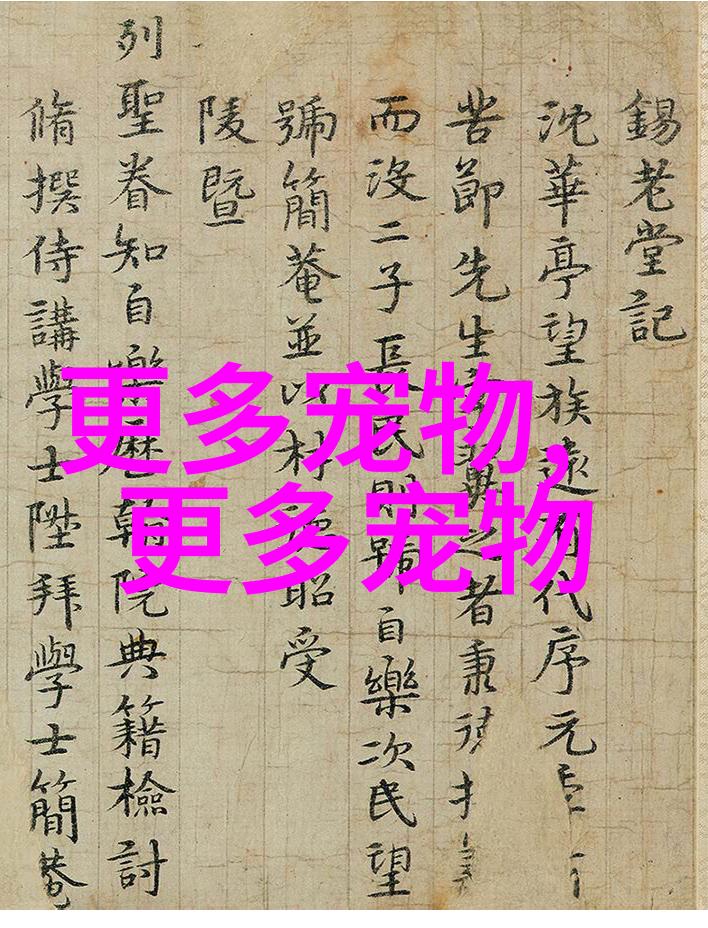 錫老堂記
沈華亭望族遠有代序元
苦節先生之者秉
而沒二子長民則號自樂次民望
號簡菴並以材昭受
陵暨
列聖眷知自樂歷翰院典籍檢討
脩撰侍講學士陞拜學士簡菴
更多宠物,
更多宠物